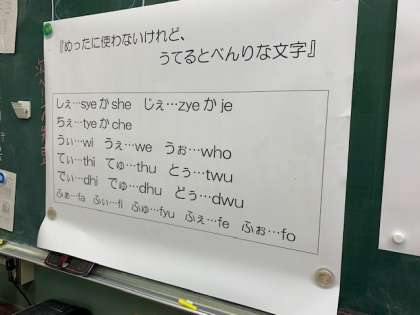 『めったに使わないけれど、
うてるとべんりな文字』
しぇ…syeかshe　じぇ…zyeかje
ちぇ…tyeかche
うぃ…wi　うぇ…we　うぉ…who
てぃ…thi　てゅ…thu　とぅ…twu
でぃ…dhi　でゅ…dhu　どぅ…dwu
ふぁ…fa　ふぃ…fi　ふゅ…fyu　ふぇ…fe　ふぉ…fo